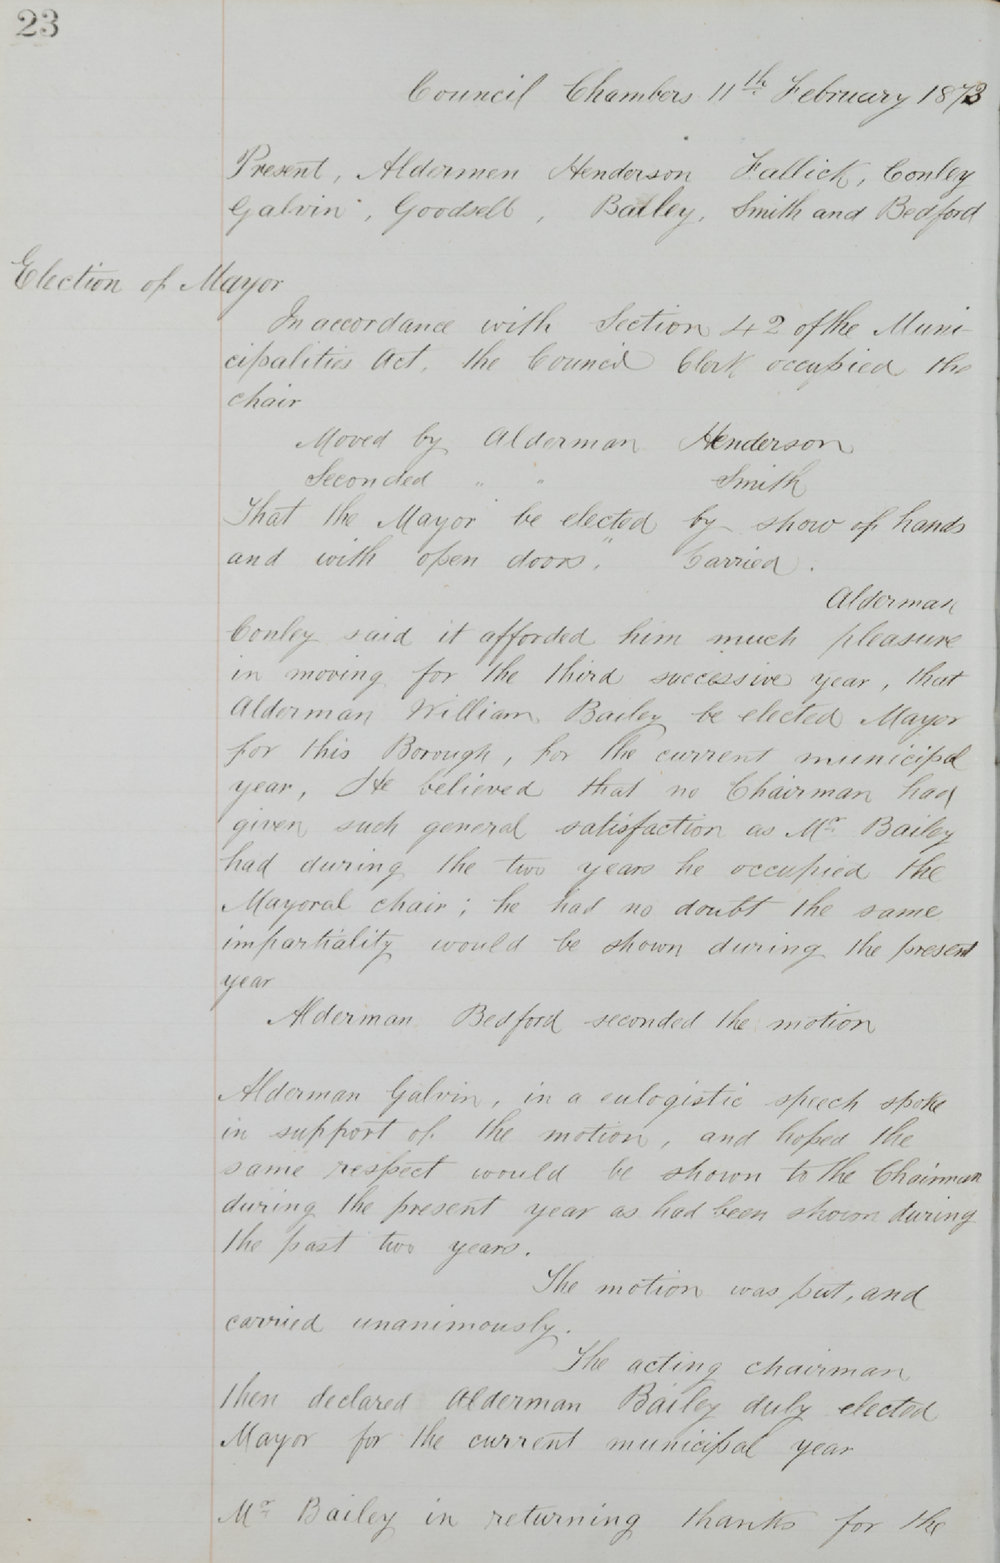 23
Council Chambers 11th February 1873
Present, Aldermen Henderson Fallick, Conley
Galvin, Goodsell, Bailey, Smith and Bedford
Election of Mayor
In accordance with Section 42 of the Muni-
cipalities Act, the Council Clerk occupied the
chair
Moved by Alderman Henderson
Seconded " " Smith
That the Mayor be elected by show of hands
and with open doors". Carried.
Alderman
Conley said it afforded him much pleasure
in moving for the third successive year, that
Alderman William Bailey be elected Mayor
for this Borough, for the current municipal
year, He believed that no Chairman had
given such general satisfaction as Mr Bailey
had during the two years he occupied the
Mayoral chair; he had no doubt the same
impartiality would be shown during the present
year
Alderman Bedford seconded the motion
Alderman Galvin, in a eulogistic speech spoke
in support of the motion, and hoped the
same respect would be shown to the Chairman
during the present year as had been shown during
the past two years.
The motion was put, and
carried unanimously.
The acting chairman
then declared Alderman Bailey duly elected
Mayor for the current municipal year
Mr Bailey in returning thanks for the